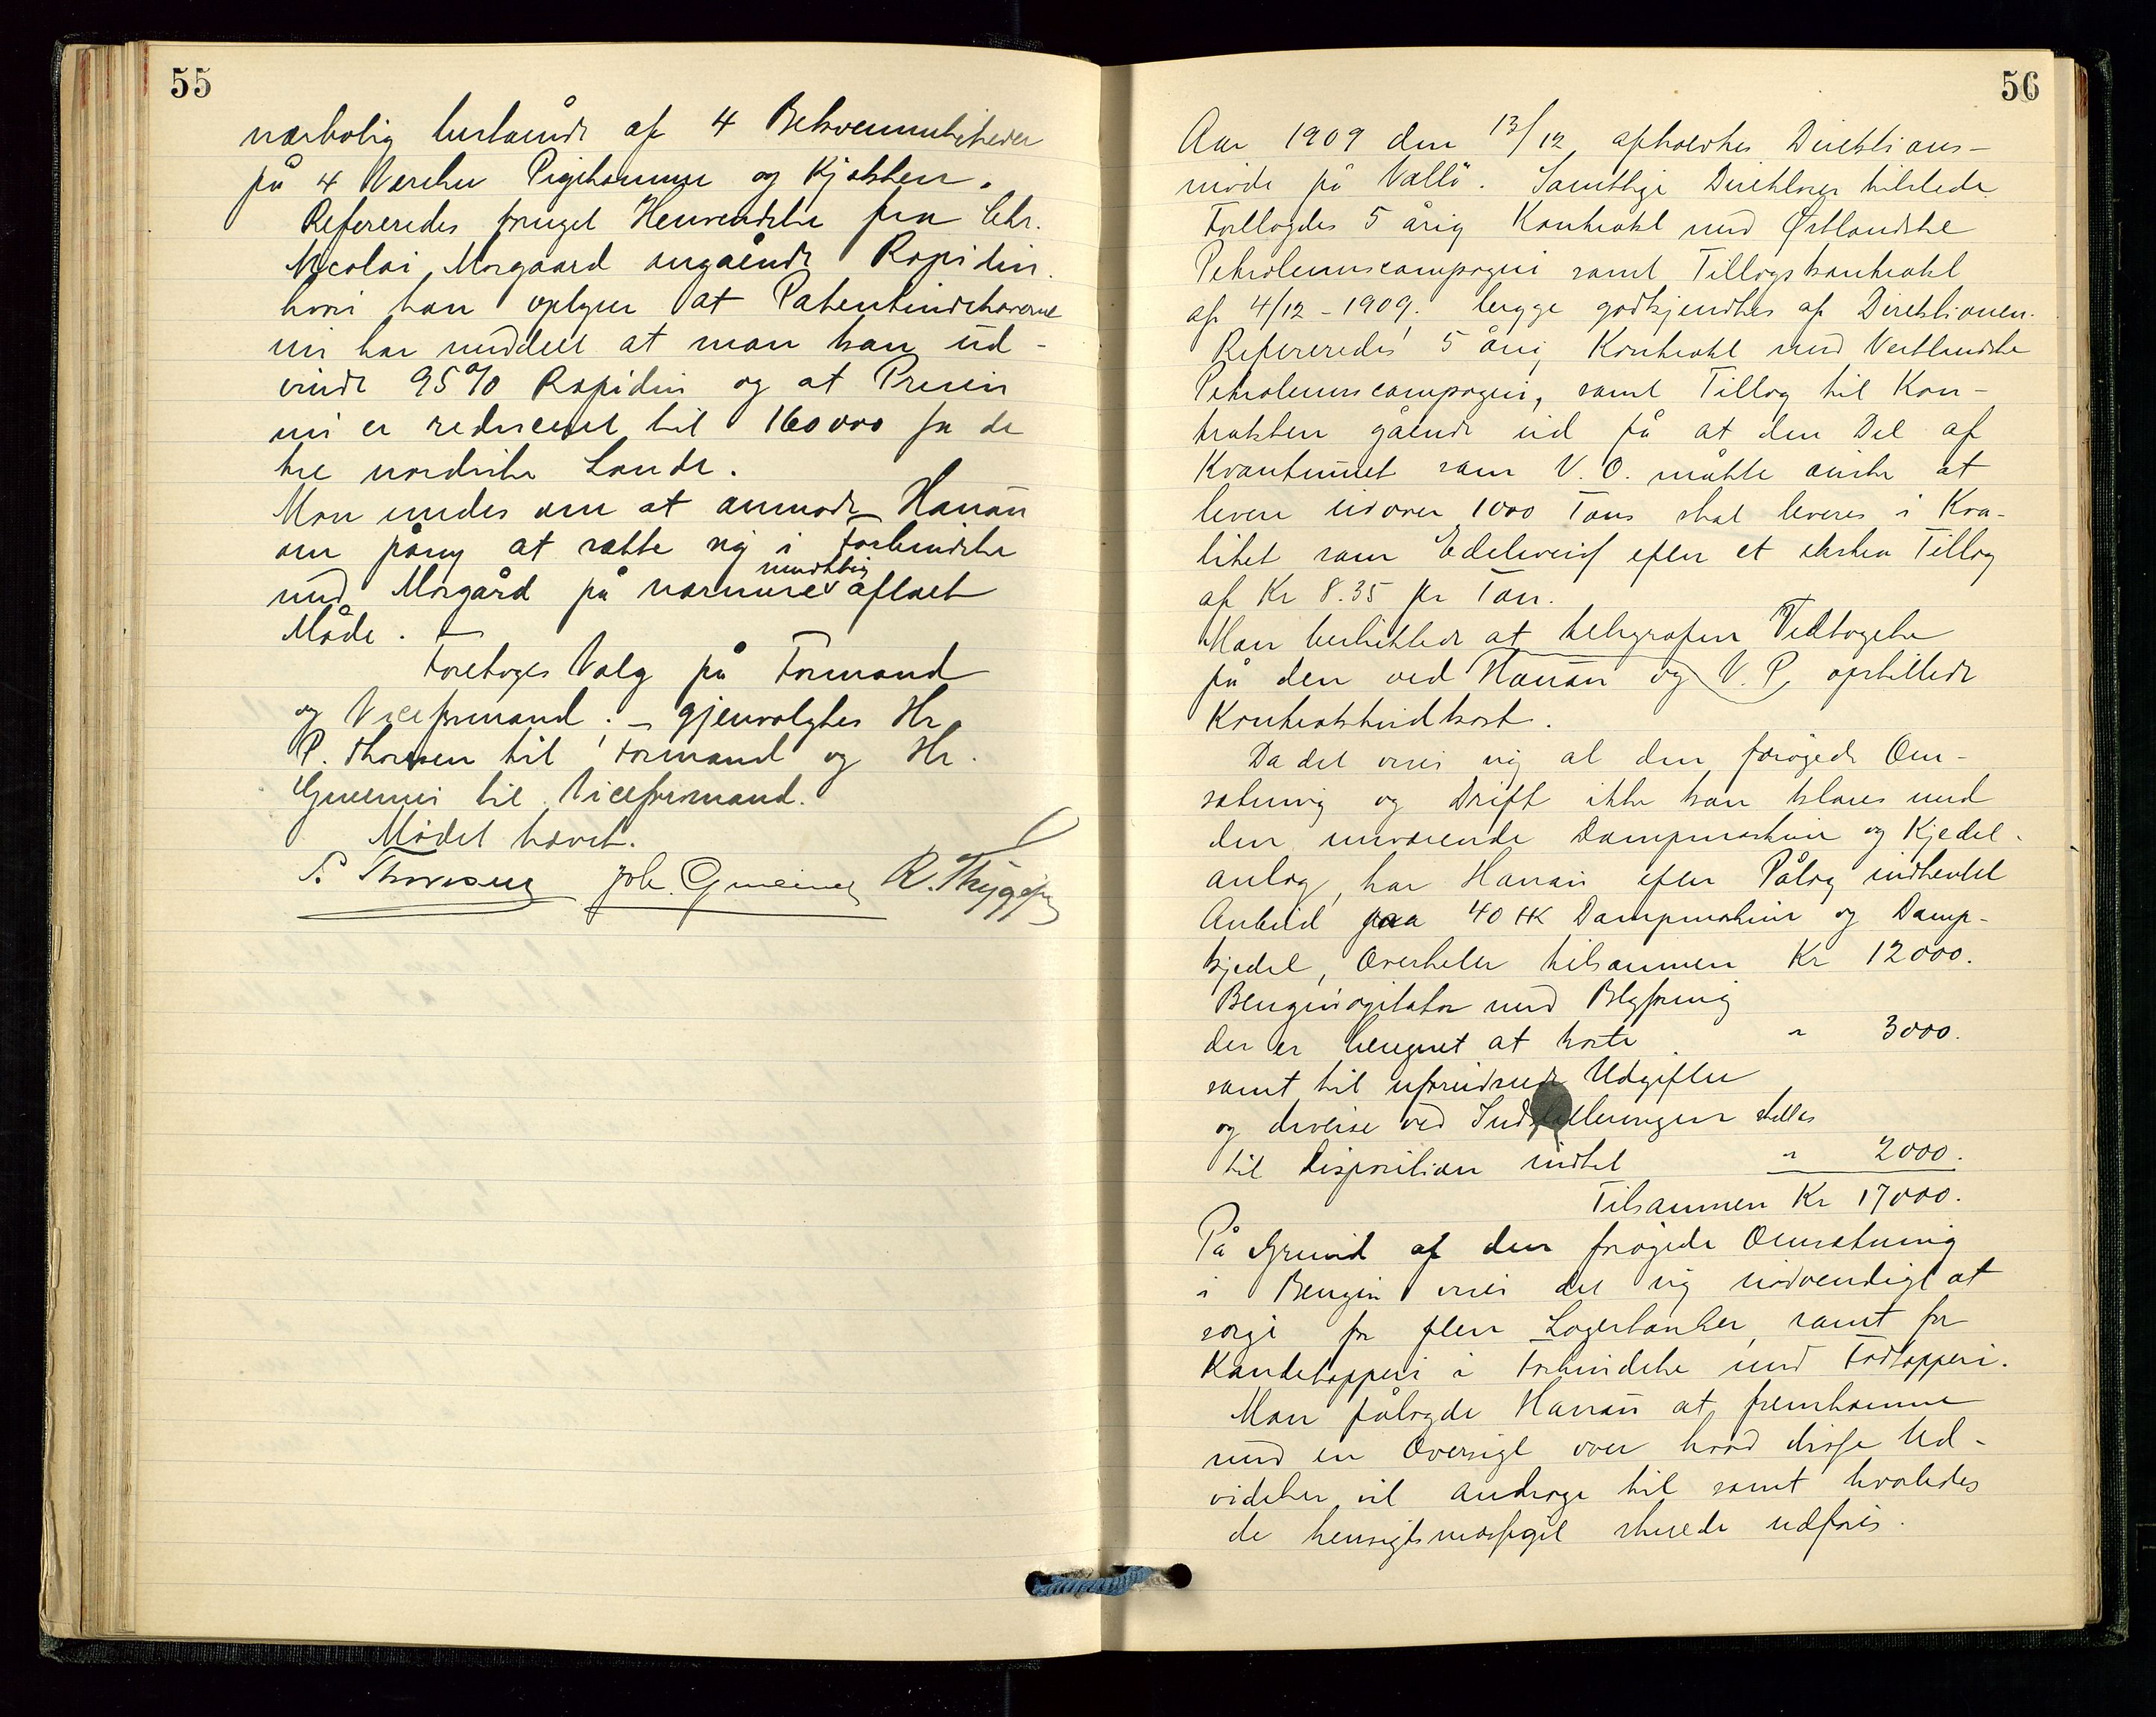 55
nærbolig bestaaende af 4 Bekvemmeligheder
på 4 Værelser Pigekammer og Kjøkken.
Refereredes fornyet Henvendelse fra Chr.
Nicolai Morgaard angående Rapidin.
hvori han oplyser at Patentindehaverne
nu har meddelt at man kan ud-
vinde 95% Rapidin og at Prisen
nu er reduceret til 160000 for de
tre nordiske Lande.
Man enedes om at anmode Hanán
om påny at sætte sig i Forbindelse
med Morgård på nærmere mundtlig aftalt
Måde. —
Foretoges Valg på Formand
og Viceformand; – gjenvalgtes Hr.
P. Thorsen til Formand og Hr.
Gmeiner til Viceformand.
Mødet hævet.
P. Thorsen Joh. Gmeiner R. Thygesen
56
Aar 1909 den 13/12 afholdtes Direktions-
møde på Vallö. Samtlige Direktører tilstede.
Forelagdes 5 årig Kontrakt med Østlandske
Petroleumscompagni samt Tillægskontrakt
af 4/12 – 1909. begge godkjendtes af Direktionen.
Refereredes 5 årig Kontrakt med Vestlandske
Petroleumscompagni, samt Tillæg til Kon-
trakten gående ud på at den Del af
Kvantumet som V. O. måtte ønske at
levere udover 1000 Tons skal leveres i Kva-
litet som Edelweiss efter et ekstra Tillæg
af Kr 8.35 pr Ton.
Man besluttede at telegrafere Vedtagelse
på den ved Hanán og V. P. opstillede
Kontraktsudkast.
Da det viser sig at den forøgede Om-
sætning og Drift ikke kan klares med
den nuværende Dampmaskine og Kjedel-
anlæg, har Hanán efter Pålæg indhentet
Anbud paa 40 HK Dampmaskine og Damp-
kjedel, Overheter tilsammen Kr 12000.
Benzinagitator med Blyforing
der er beregnet at koste " 3000.
samt til uforudseede Udgifter
og diverse ved Indstillingen stilles
til Disposition indtil " 2000.
Tilsammen Kr 17000.
På Grund af den forøgede Omsætning
i Benzin viser det sig nødvendigt at
sørge for flere Lagertanker, samt for
Kandetapperi i Forbindelse med Fadtapperi.
Man pålagde Hanán at fremkomme
med en Oversigt over hvad disse Ud-
videlser vil andrage til samt hvorledes
de hensigtsmæssigst skulde udføres.